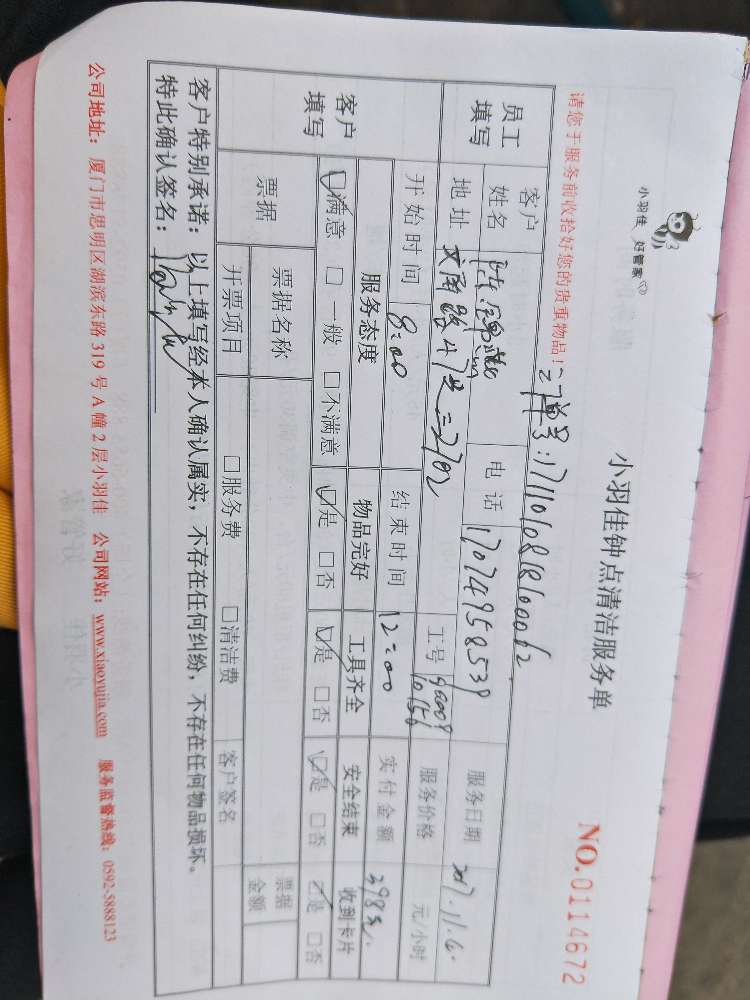 小羽佳 好管家
小羽佳钟点清洁服务单
NO.0114672
请您于服务前收拾好您的贵重物品!
员工填写
客户姓名
电话 17074958539
服务日期
地址
工号
服务价格 元/小时
开始时间 8:00
结束时间 12:00
实付金额
客户填写
服务态度 物品完好 工具齐全 安全结束 收到卡片
☑满意 □一般 □不满意 ☑是 □否 ☑是 □否 ☑是 □否 ☑是 □否
票据
票据名称
票据金额
开票项目 □服务费 □清洁费 客户签名
客户特别承诺:以上填写经本人确认属实,不存在任何纠纷,不存在任何物品损坏。
特此确认签名:
公司地址:厦门市思明区湖滨东路 319 号 A 幢 2 层小羽佳 公司网站:www.xiaoyujia.com 服务监督热线:0592-5888123